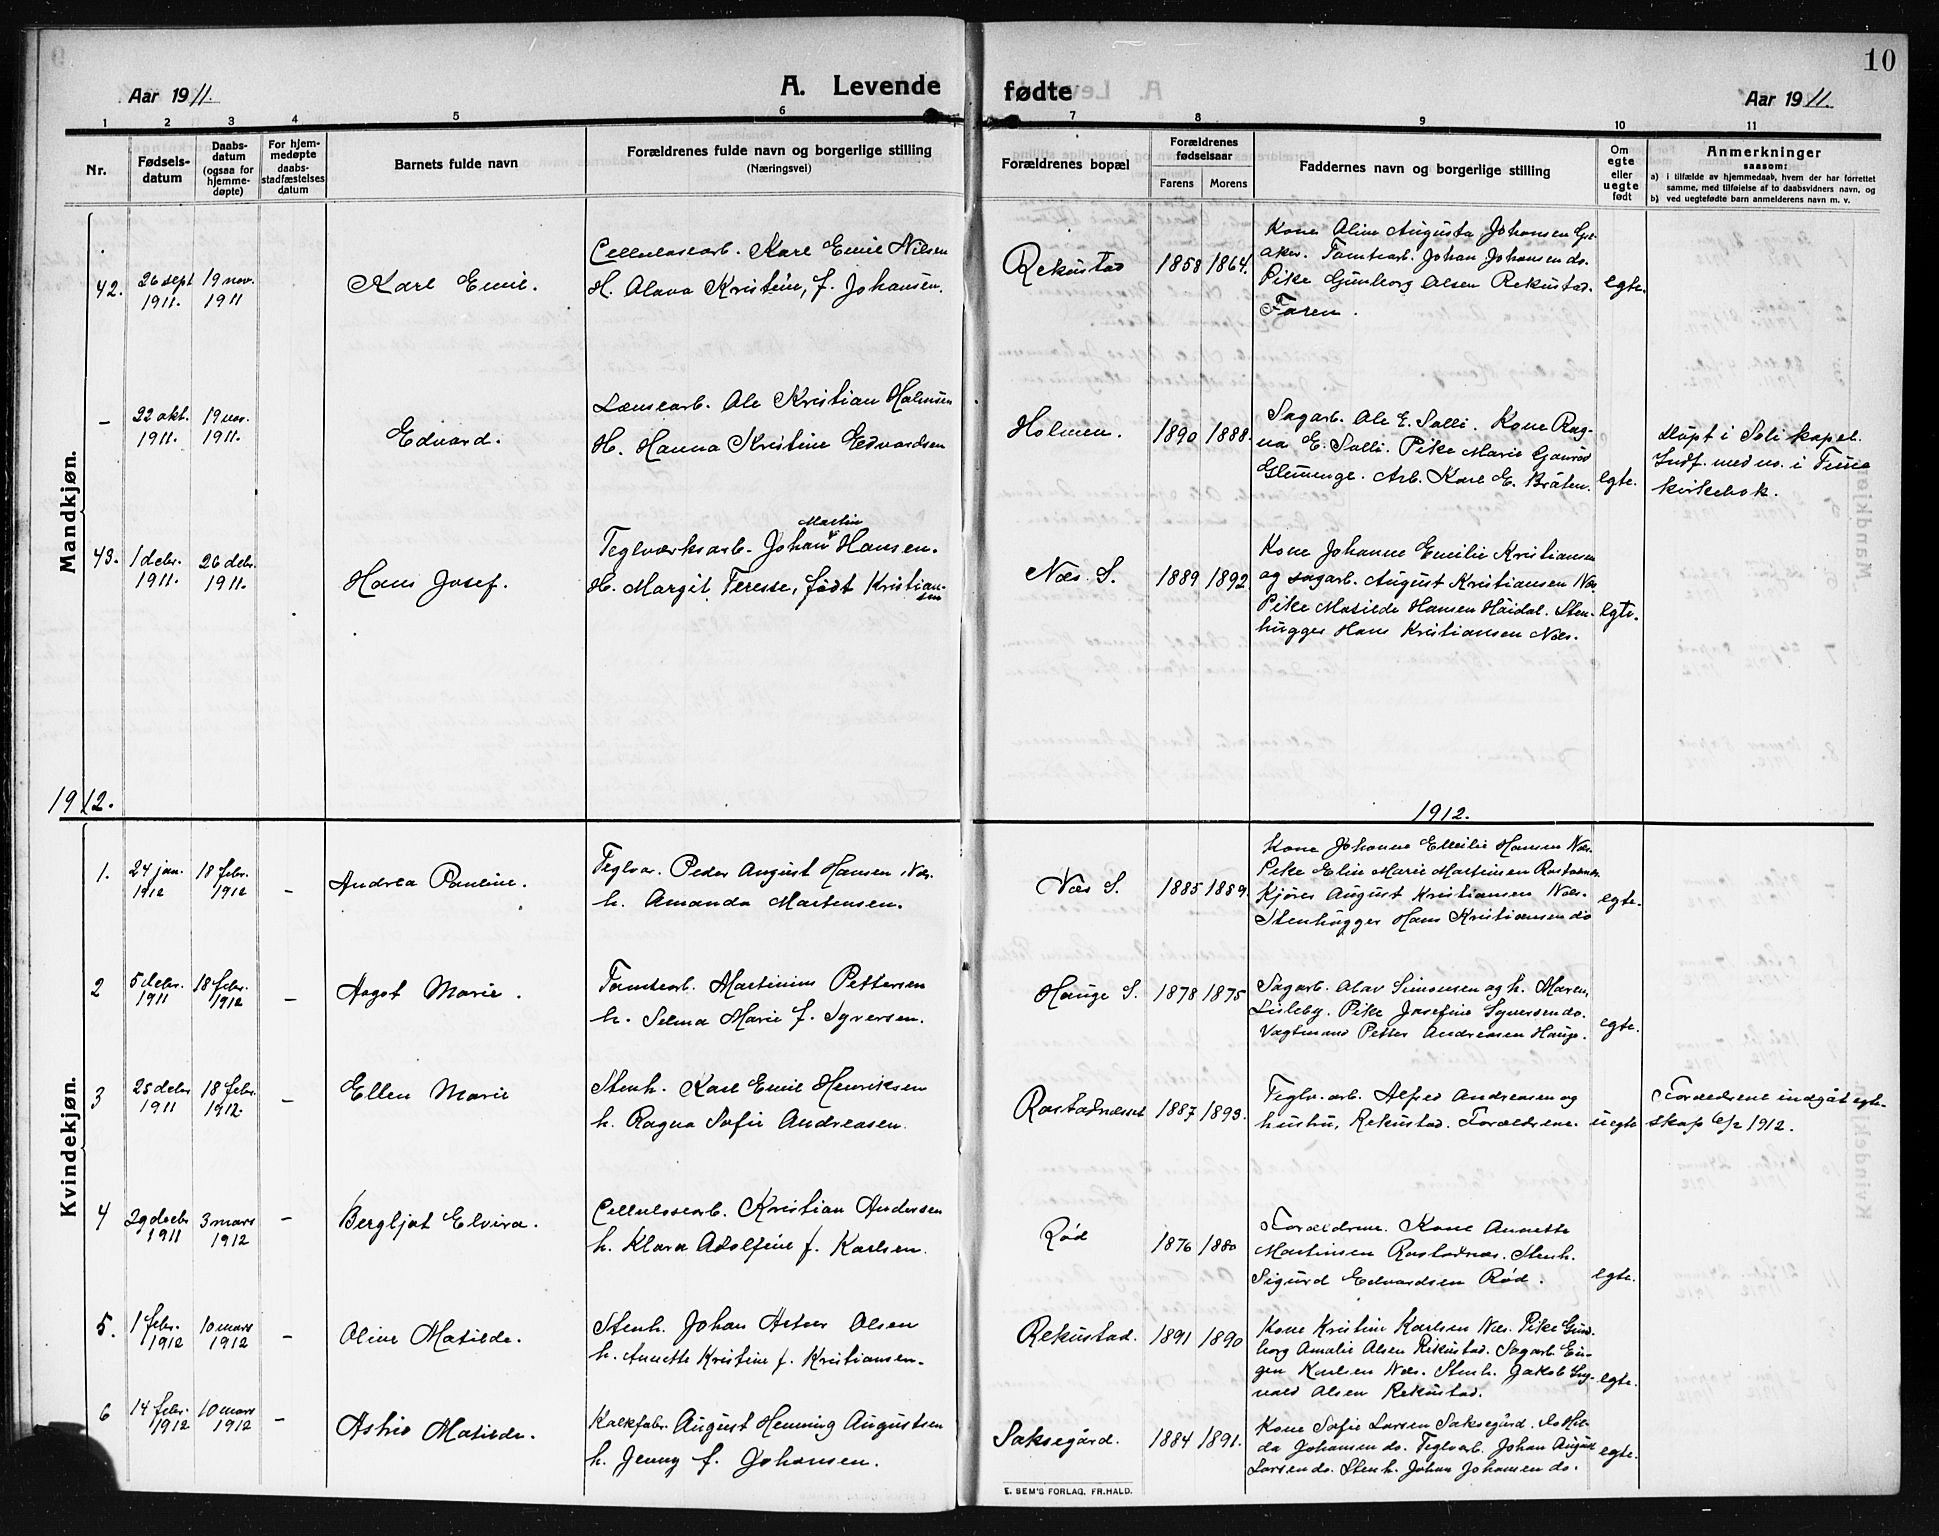 10
Aar 1911.
A. Levende
fødte
Aar 1911.
1 2 3 4 5 6 7 8 9 10 11
Nr.
Fødsels-
datum
Daabs-
datum
(ogsaa for
hjemme-
døpte)
For hjem-
medøpte
daabs-
stadfæstelses
datum
Barnets fulde navn
Forældrenes fulde navn og borgerlige stilling
(Næringsvei)
Forældrenes bopæl
Forældrenes
fødselsaar
Farens Morens
Faddernes navn og borgerlige stilling
Om
egte
eller
uegte
født
Anmerkninger
saasom:
a) i tilfælde av hjemmedaab, hvem der har forrettet
samme, med tilføielse af to daabsvidners navn, og
b) ved uegtefødte barn anmelderens navn m. v.
Mandkjøn.
42.
26 sept
1911.
19 nov.
1911
Karl Emil.
Cellulosearb. Karl Emil Nilsen
H. Alava Kristine, f. Johansen.
Rekustad
1858 1864.
Kone Aline Augusta Johansen Gre-
aker. Tomtearb. Johan Johansen do.
Pike Gunborg Olsen Rekustad.
Faren.
egte.
-
22 okt.
1911.
19 nov.
1911.
Edvard.
Lensearb. Ole Kristian Holmsen
H. Hanna Kristine Edvardsen
Holmen.
1890 1888.
Sagarb. Ole E. Solli. Kone Rag-
na E. Solli. Pike Marie
Glemmenge. Arb. Karl E. Bråten.
egte.
Døpt i Soli kapel.
Indf. med no. i Tune
kirkebok.
43.
1 debr.
1911.
26 debr.
1911.
Hans Josef.
Martin
Teglværksarb. Johan Hansen.
H. Margit Teresse, født Kristian-
sen
Næs S.
1889 1892.
Kone Johanne Emilie Kristiansen
og sagarb. August Kristiansen Næs
Pike Matilde Hansen Höidal. Sten-
hugger Hans Kristiansen Næs.
egte.
1912.
1912.
Kvindekjøn.
1.
24 jan.
1912
18 febr.
1912
-
Andrea Pauline.
Teglvar. Peder August Hansen Næs.
h. Amanda Martensen.
Næs S.
1885 1889.
Kone Johanne Emilie Hansen Næs.
Pike Elin Marie Martinsen Rostadnes.
Kjører August Kristiansen Næs.
Stenhugger Hans Kristiansen do
egte.
2
5 debr.
1911
18 febr.
1912
-
Aagot Marie.
Tomtearb. Martinius Pettersen
h. Selma Marie f. Syversen.
Hauge S.
1878 1875
Sagarb. Olav Simonsen og h. Maren,
Lisleby. Pike Josefine Syversen do.
Vagtmand Petter Andreasen Hauge.
egte.
3
25 debr
1911
18 febr.
1912.
-
Ellen Marie
Stenh. Karl Emil Henriksen
h. Ragna Sofie Andreasen.
Rostadnesset
1887 1893.
Teglv.arb. Alfred Andreasen og
hustru, Rekustad. Forældrene.
uegte
Forældrene indgåt egte-
skap 6/2 1912.
4
29 debr
1911
3 mars
1912
-
Bergljot Elvira.
Cellulosearb. Kristian Andersen
h. Klara Adolfine f. Karlsen.
Rød
1876 1880
Forældrene. Kone Annette
Martinsen Rostadnes. Stenh.
Sigurd Edvardsen Rød.
egte.
5.
1 febr.
1912
10 mars
1912
-
Oline Matilde.
Stenh. Johan Olsen
h. Annette Kristine f. Kristiansen.
Rekustad.
1891 1890
Kone Kristine Karlsen Næs. Pike Gun-
borg Amalie Olsen Rekustad. Sagarb. Eu-
gen Karlsen Næs. Stenh. Jakob Ing-
vald Olsen Rekustad.
egte.
6
14 febr.
1912
10 mars
1912
-
Astrid Matilde.
Kalkfabr. August Henning Augustsen
h. Jenny f. Johansen.
Saksegård.
1884 1891.
Kone Sofie Larsen Saksegård. do Hil-
da Johansen do. Teglvarb. Johan August
Larsen do. Stenh. Johan Johansen do.
egte.
E. SEM'S FORLAG, FR.HALD.